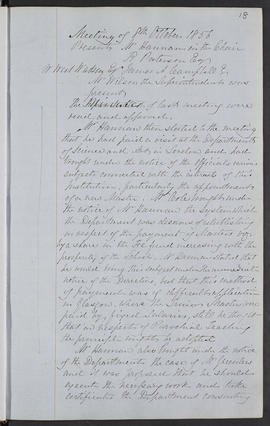 18
Meeting of 8th October 1856
Present Mr Hannan in the Chair
R Paterson Esq
W West Watson Esq James A Campbell E.
Mr Wilson the Superintendent was
present
The Minutes of last meeting were
read and approved.
Mr Hannan then stated to the meeting
that he had paid a visit at the Department
of Science and Art in London and had
brought under the notice of the Officials various
subjects connected with the interests of this
Institution, particularly the appointment
of a new Master. Mr Cole brought under
the notice of Mr Hannan the System which
the Department was desirous of establishing
in respect of the payment of Masters by
a share in the Fees and increasing with the
prosperity of the school. Mr Hannan stated that
he would bring this subject under the immediate
notice of the Directors, but that this method
of payment was of difficult application
in Glasgow, where the Junior Masters were
paid by fixed Salaries, still he thought
that in respect of Parochial Teaching
the principle might be adopted.
Mr Hannan also brought under the notice
of the Department the case of Mr
and it was proposed that he should
execute the necessary work and take
certificates the Department consenting